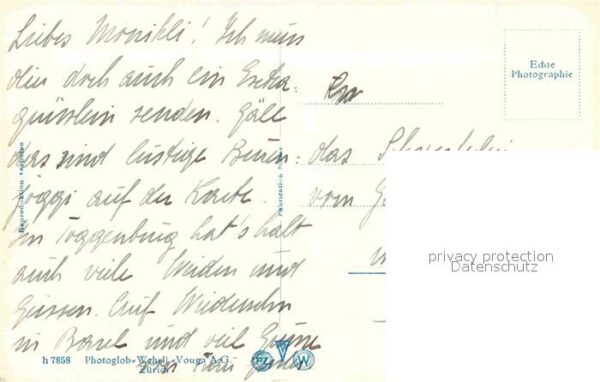 Liebes Monikli! Ich muss
dir doch auch ein Extra-
grüsslein senden. Gäll
das sind lustige Buin-
joggi auf der Karte.
Im Toggenburg hat's halt
auch viele Weiden und
Geissen. Auf Wiedersehn
in Basel und viel Grüsse
von
Für
das
vom
Echte
Photographie
Reproduction verboten
h 7858 Photoglob-Wehrli-Vouga A.G.
Zürich
PZ V W
privacy protection
Datenschutz